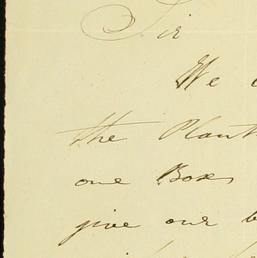 Sir
We
the Plant
one Box
give our b